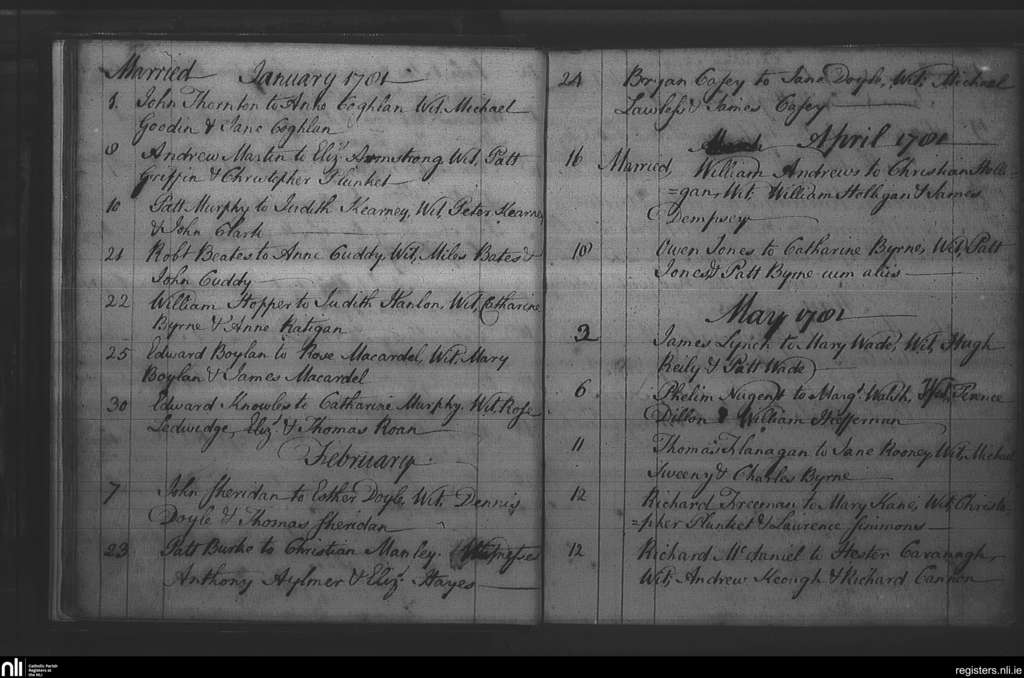 Married January 1781
1. John Thornton to Anne Coghlan Wit, Michael
Goodin & Jane Coghlan
8 Andrew Martin to Eliz. Armstrong Wit, Patt
Griffin & Christopher Plunket
10 Patt Murphy to Judith Kearney, Wit, Peter Kearney
& John Clark
21 Robt Beates to Anne Cuddy, Wit, Miles Bates &
John Cuddy
22 William Hopper to Judith Hanlon, Wit, Catharine
Byrne & Anne Ratigan
25 Edward Boylan to Rose Macardel, Wit, Mary
Boylan & James Macardel
30 Edward Knowles to Catharine Murphy. Wit, Rose
Ledwidge, Eliz. & Thomas Roan
February
7 John Sheridan to Esther Doyle, Wit, Dennis
Doyle & Thomas Sheridan
23 Patt Burke to Christian Manley. Witnesses
Anthony Aylmer & Eliz. Hayes
24 Bryan Casey to Jane Doyle, Wit, Michael
Lawless & James Casey
April 1781
16 Married, William Andrews to Christian Holli=
=gan, Wit, William Holligan & James
Dempsey
18 Owen Jones to Catharine Byrne, Wit, Patt
Jones & Patt Byrne cum aliis
May 1781
3 James Lynch to Mary Wade, Wit, Hugh
Reily & Patt Wade
6 Phelim Nugent to Margt. Walsh, Wit,
Dillon & William Heffernan
11 Thomas Flanagan to Jane Rooney, Wit, Michael
Sweeny & Charles Byrne
12 Richard Freeman to Mary Kane, Wit, Christo=
=pher Plunket & Laurence Simmons
12 Richard McDaniel to Hester Cavanagh
Wit, Andrew Keough & Richard Cannon
nli Catholic Parish
Registers at
the NLI
registers.nli.ie